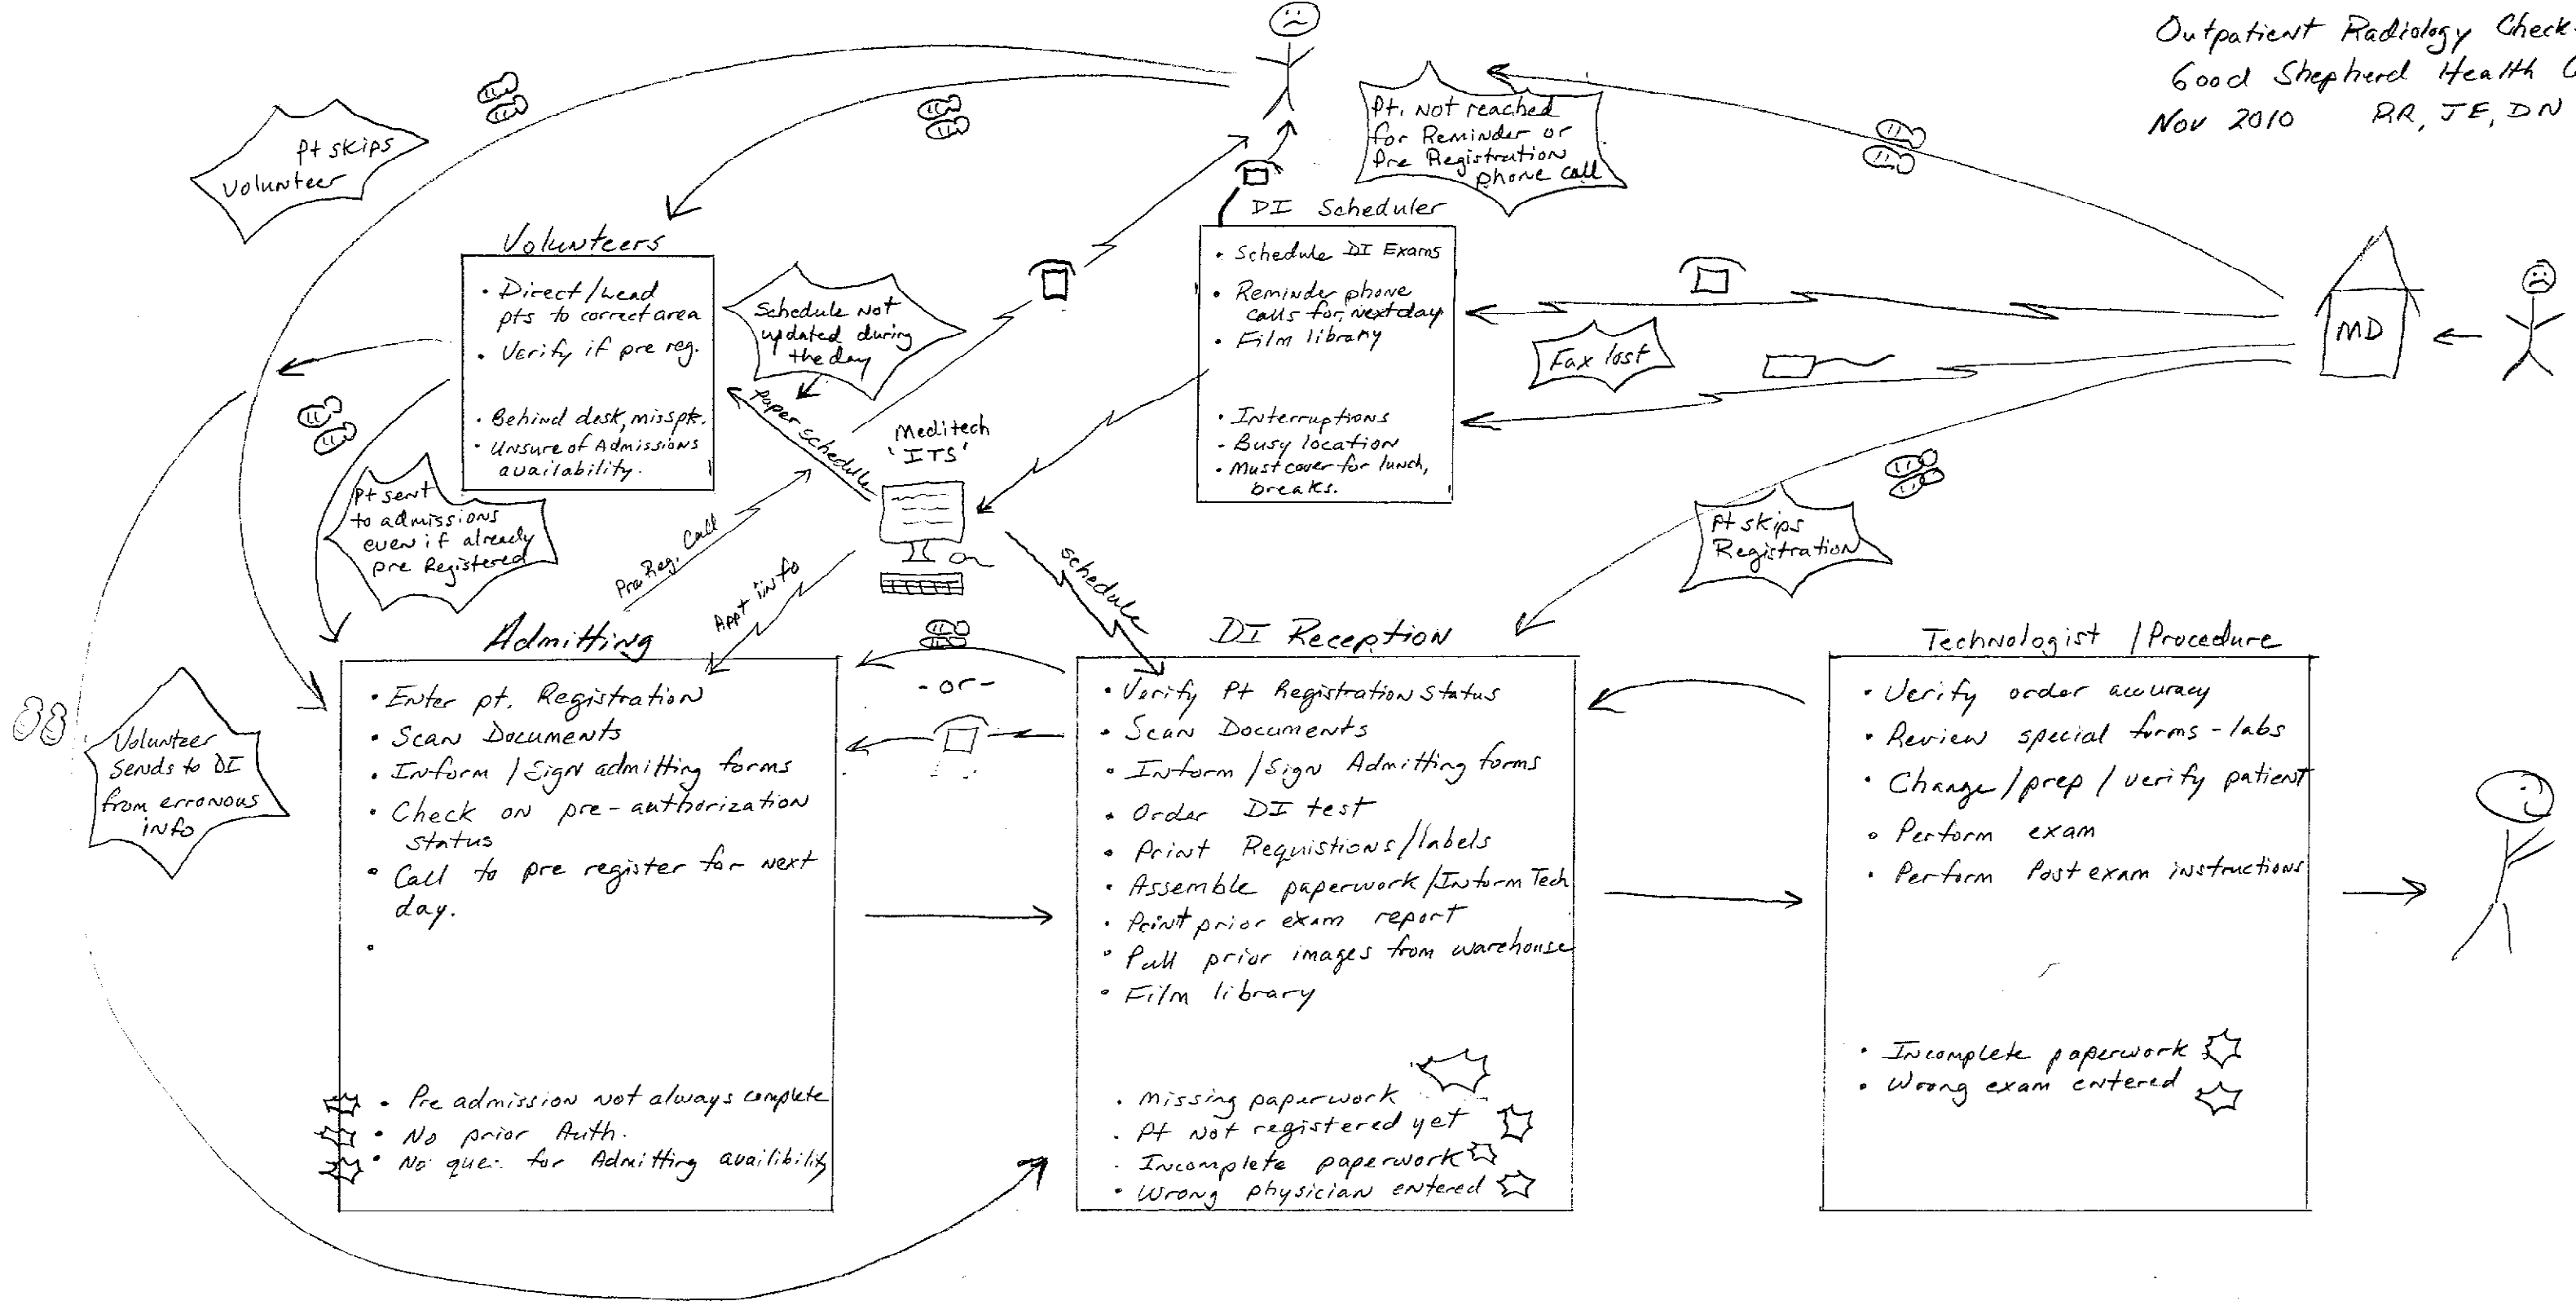 Outpatient Radiology Check
Good Shepherd Health
Nov 2010 RR, JE, DN
Pt skips
Volunteer
Pt. not reached
for Reminder or
Pre Registration
phone call
DI Scheduler
• Schedule DI Exams
• Reminder phone
calls for next day
• Film library
• Interruptions
- Busy location
• Must cover for lunch,
breaks.
Volunteers
• Direct/Lead
pts to correct area
• Verify if pre reg.
• Behind desk, miss pts.
• Unsure of Admissions
availability.
Schedule not
updated during
the day
Paper schedule
Meditech
'ITS'
Fax lost
MD
Pt sent
to admissions
even if already
pre Registered
Pre Reg. Call
Appt info
Schedule
Pt skips
Registration
Volunteer
Sends to DI
from erronous
info
Admitting
• Enter pt. Registration
• Scan Documents
• Inform / Sign admitting forms
• Check on pre-authorization
status
• Call to pre register for next
day.
•
• Pre admission not always complete
• No prior Auth.
• No que. for Admitting availibility
- or -
DI Reception
• Verify Pt Registration Status
• Scan Documents
• Inform / Sign Admitting forms
• Order DI test
• Print Requistions/labels
• Assemble paperwork/Inform Tech
• Print prior exam report
• Pull prior images from warehouse
• Film library
• Missing paperwork
• Pt not registered yet
• Incomplete paperwork
• Wrong physician entered
Technologist / Procedure
• Verify order accuracy
• Review special forms - labs
• Change / prep / verify patient
• Perform exam
• Perform Post exam instructions
• Incomplete paperwork
• Wrong exam entered